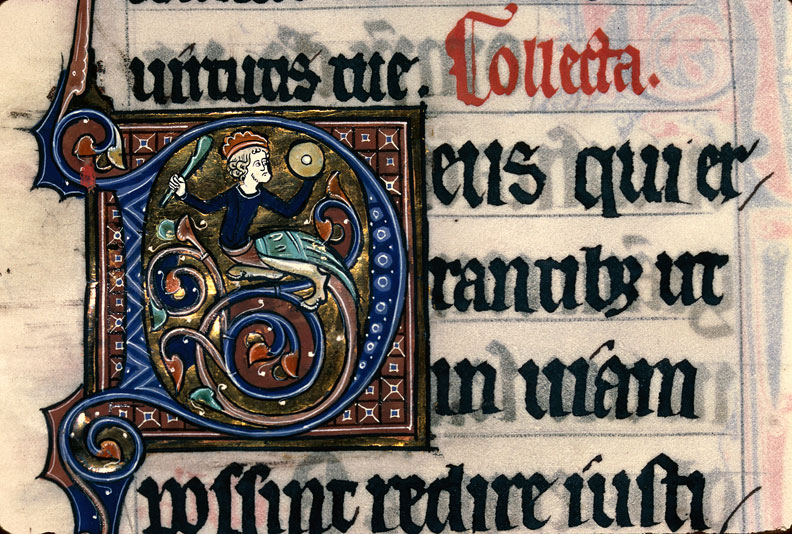 uirtutis tue. Collecta.
Deus qui er
rantibꝫ ut
in uiam
possint redire iusti